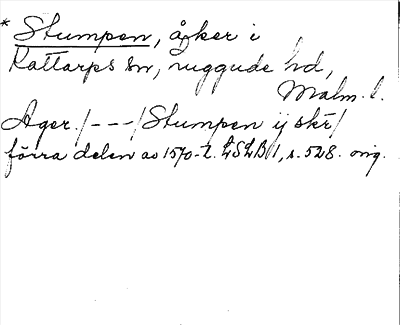 * Stumpen, åker i
Kattarps sn, Luggude hd,
Malm. l.
Ager /---/ Stumpen ij skr/
förra delen av 1570-t. LSLB 1, s. 528. orig.